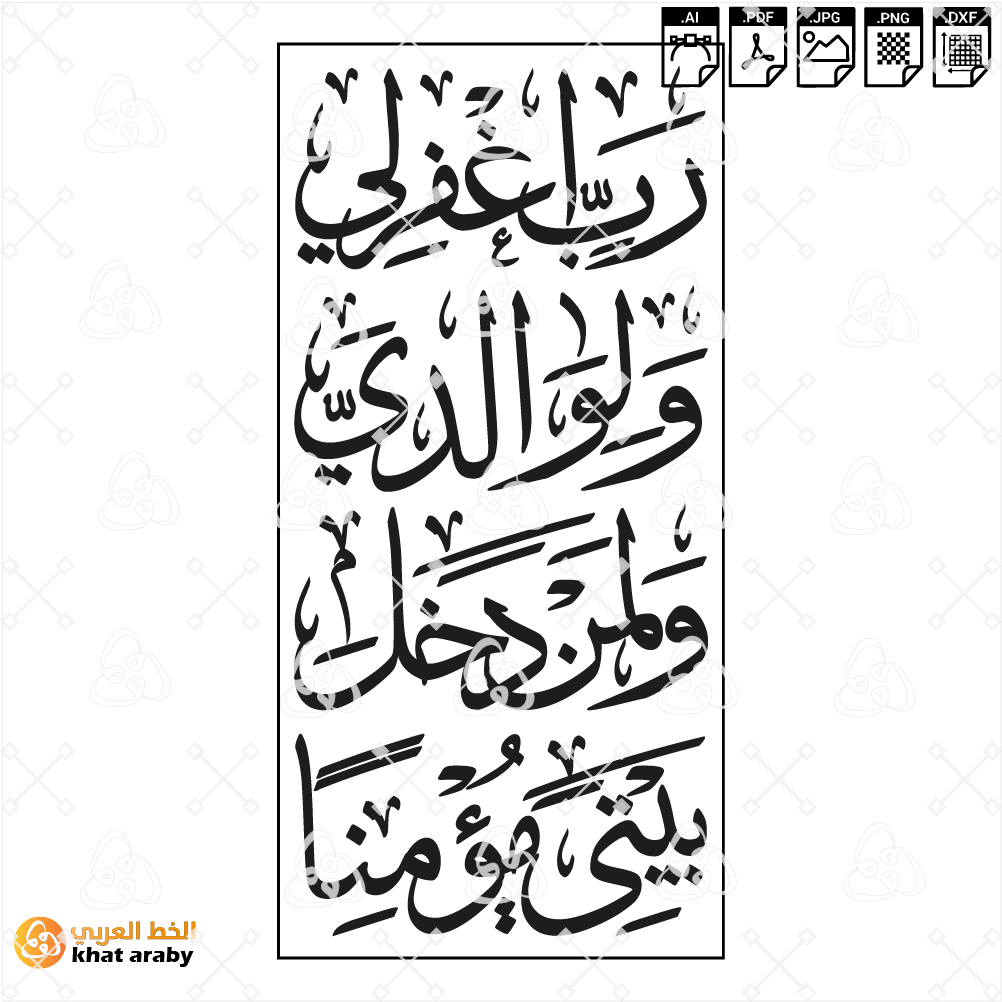 .AI .PDF .JPG .PNG .DXF
رَبِّ اغْفِرْ لِي
وَلِوَالِدَيَّ
وَلِمَنْ دَخَلَ
بَيْتِيَ مُؤْمِنًا
الخط العربي
khat araby